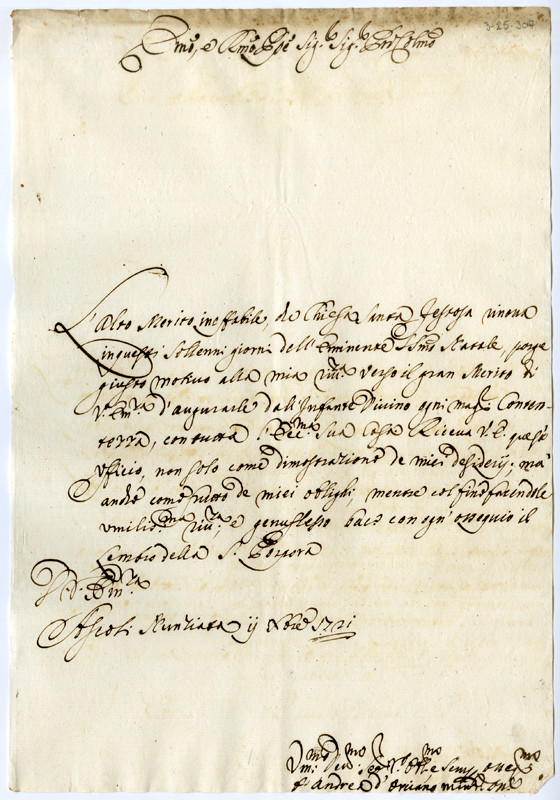 3-25-307
Emo, e Rmo Sig.r Sig.r
L'alto Merito ineffabile, che Chiesa Santa festosa
inquesti Sollenni giorni dell'eminente Ssmo Natale, porge
giusto motivo alla mia verso il gran Merito di
V. Em.za d'augurarle dall'Infante Divino ogni mag.r Conten-
tezza, con tutta l'Ecc.ma Sua Casa Riceva V. E. questo
Ufficio, non solo come dimostrazione de miei desiderij; ma
anche come frutto de miei oblighi, mentre col fine facendole
umiliss.ma e genuflesso bacio con ogn'ossequio il
Lembo della S. Porpora
D. V. Em.za
Ascoli Nunziata ij Nbre 1721
Um.mo Dev.mo
f. Andrea d'